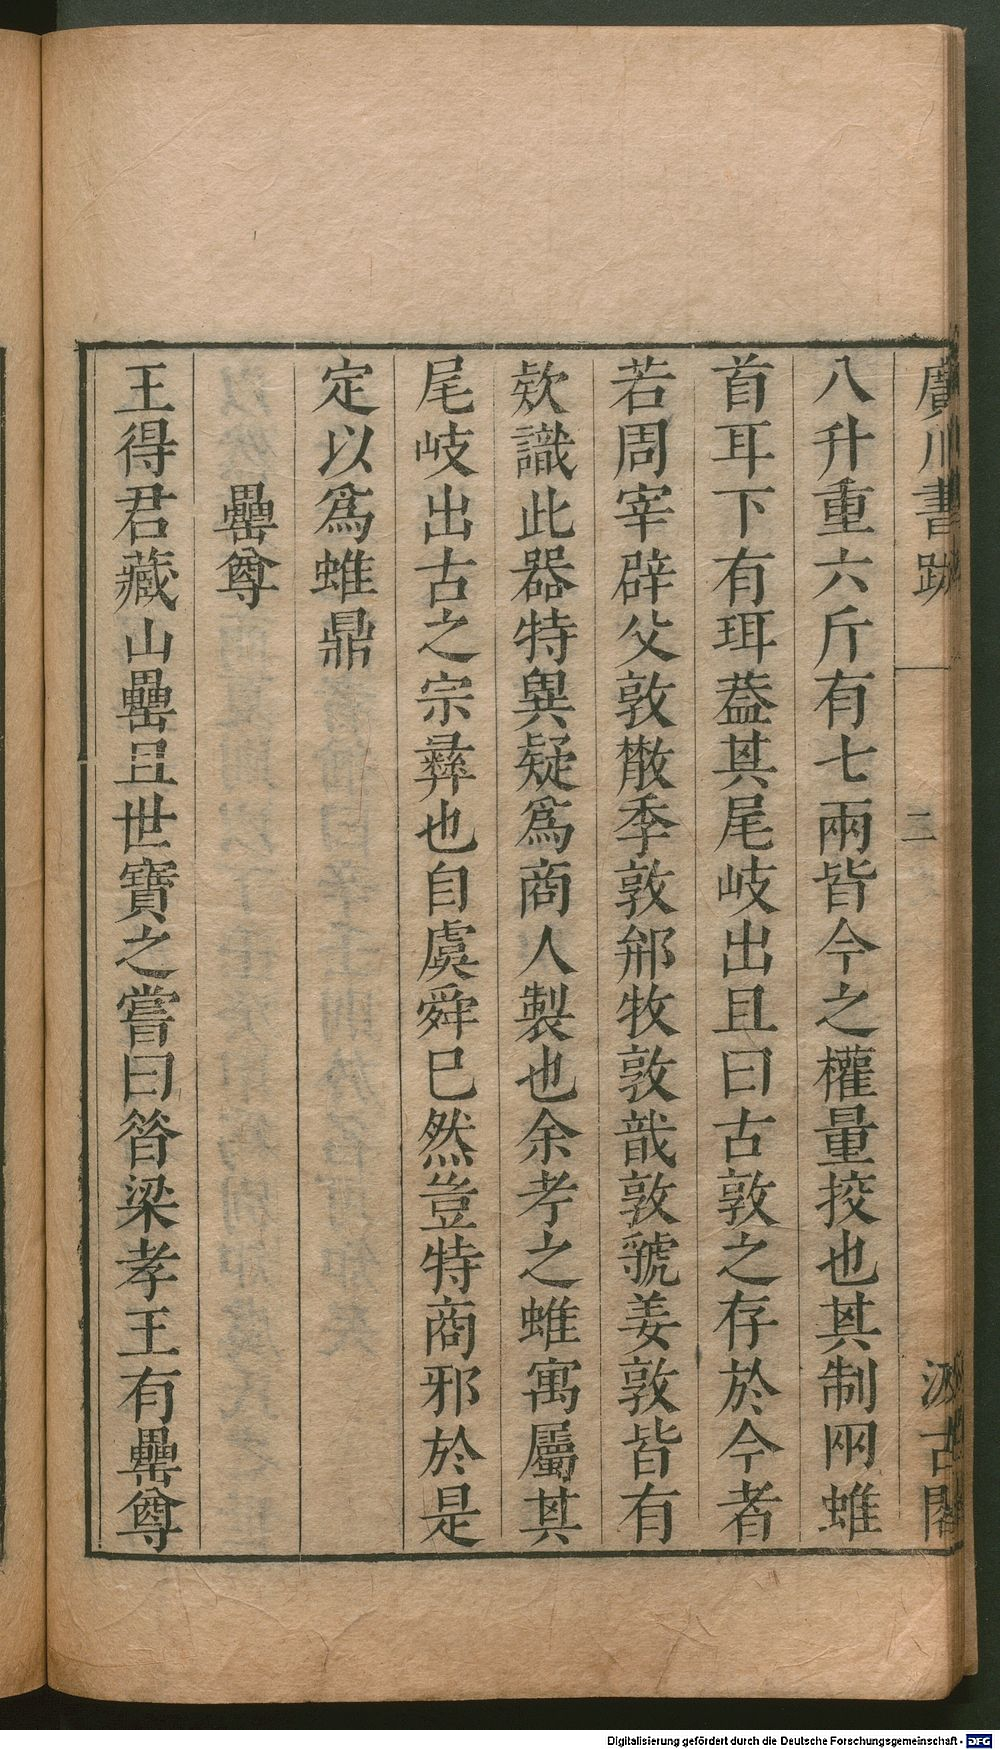 廣川書跋 二 汲古閣
八升重六斤有七兩皆今之權量挍也其制兩蜼
首耳下有珥葢其尾岐出且曰古敦之存於今者
若周宰辟父敦散季敦䢵牧敦戠敦虢姜敦皆有
欵識此器特異疑爲商人製也余考之蜼寓屬其
尾岐出古之宗彝也自虞舜巳然豈特商邪於是
定以爲蜼鼎
罍尊
王得君藏山罍且世寶之嘗曰昝梁孝王有罍尊
Digitalisierung gefördert durch die Deutsche Forschungsgemeinschaft - DFG